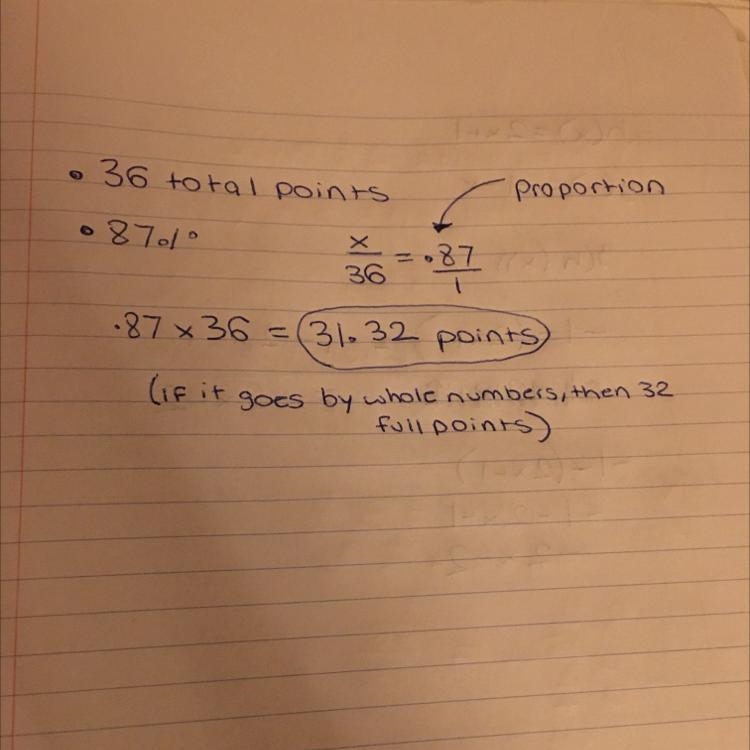 • 36 total points
proportion
• 87%
x/36 = .87/1
.87 x 36 = 31.32 points
(if it goes by whole numbers, then 32
full points)